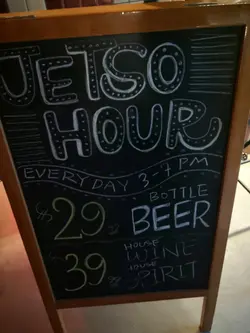 JETSO
HOUR
EVERYDAY 3-7 PM
$29 BOTTLE BEER
$39 HOUSE WINE
HOUSE SPIRIT